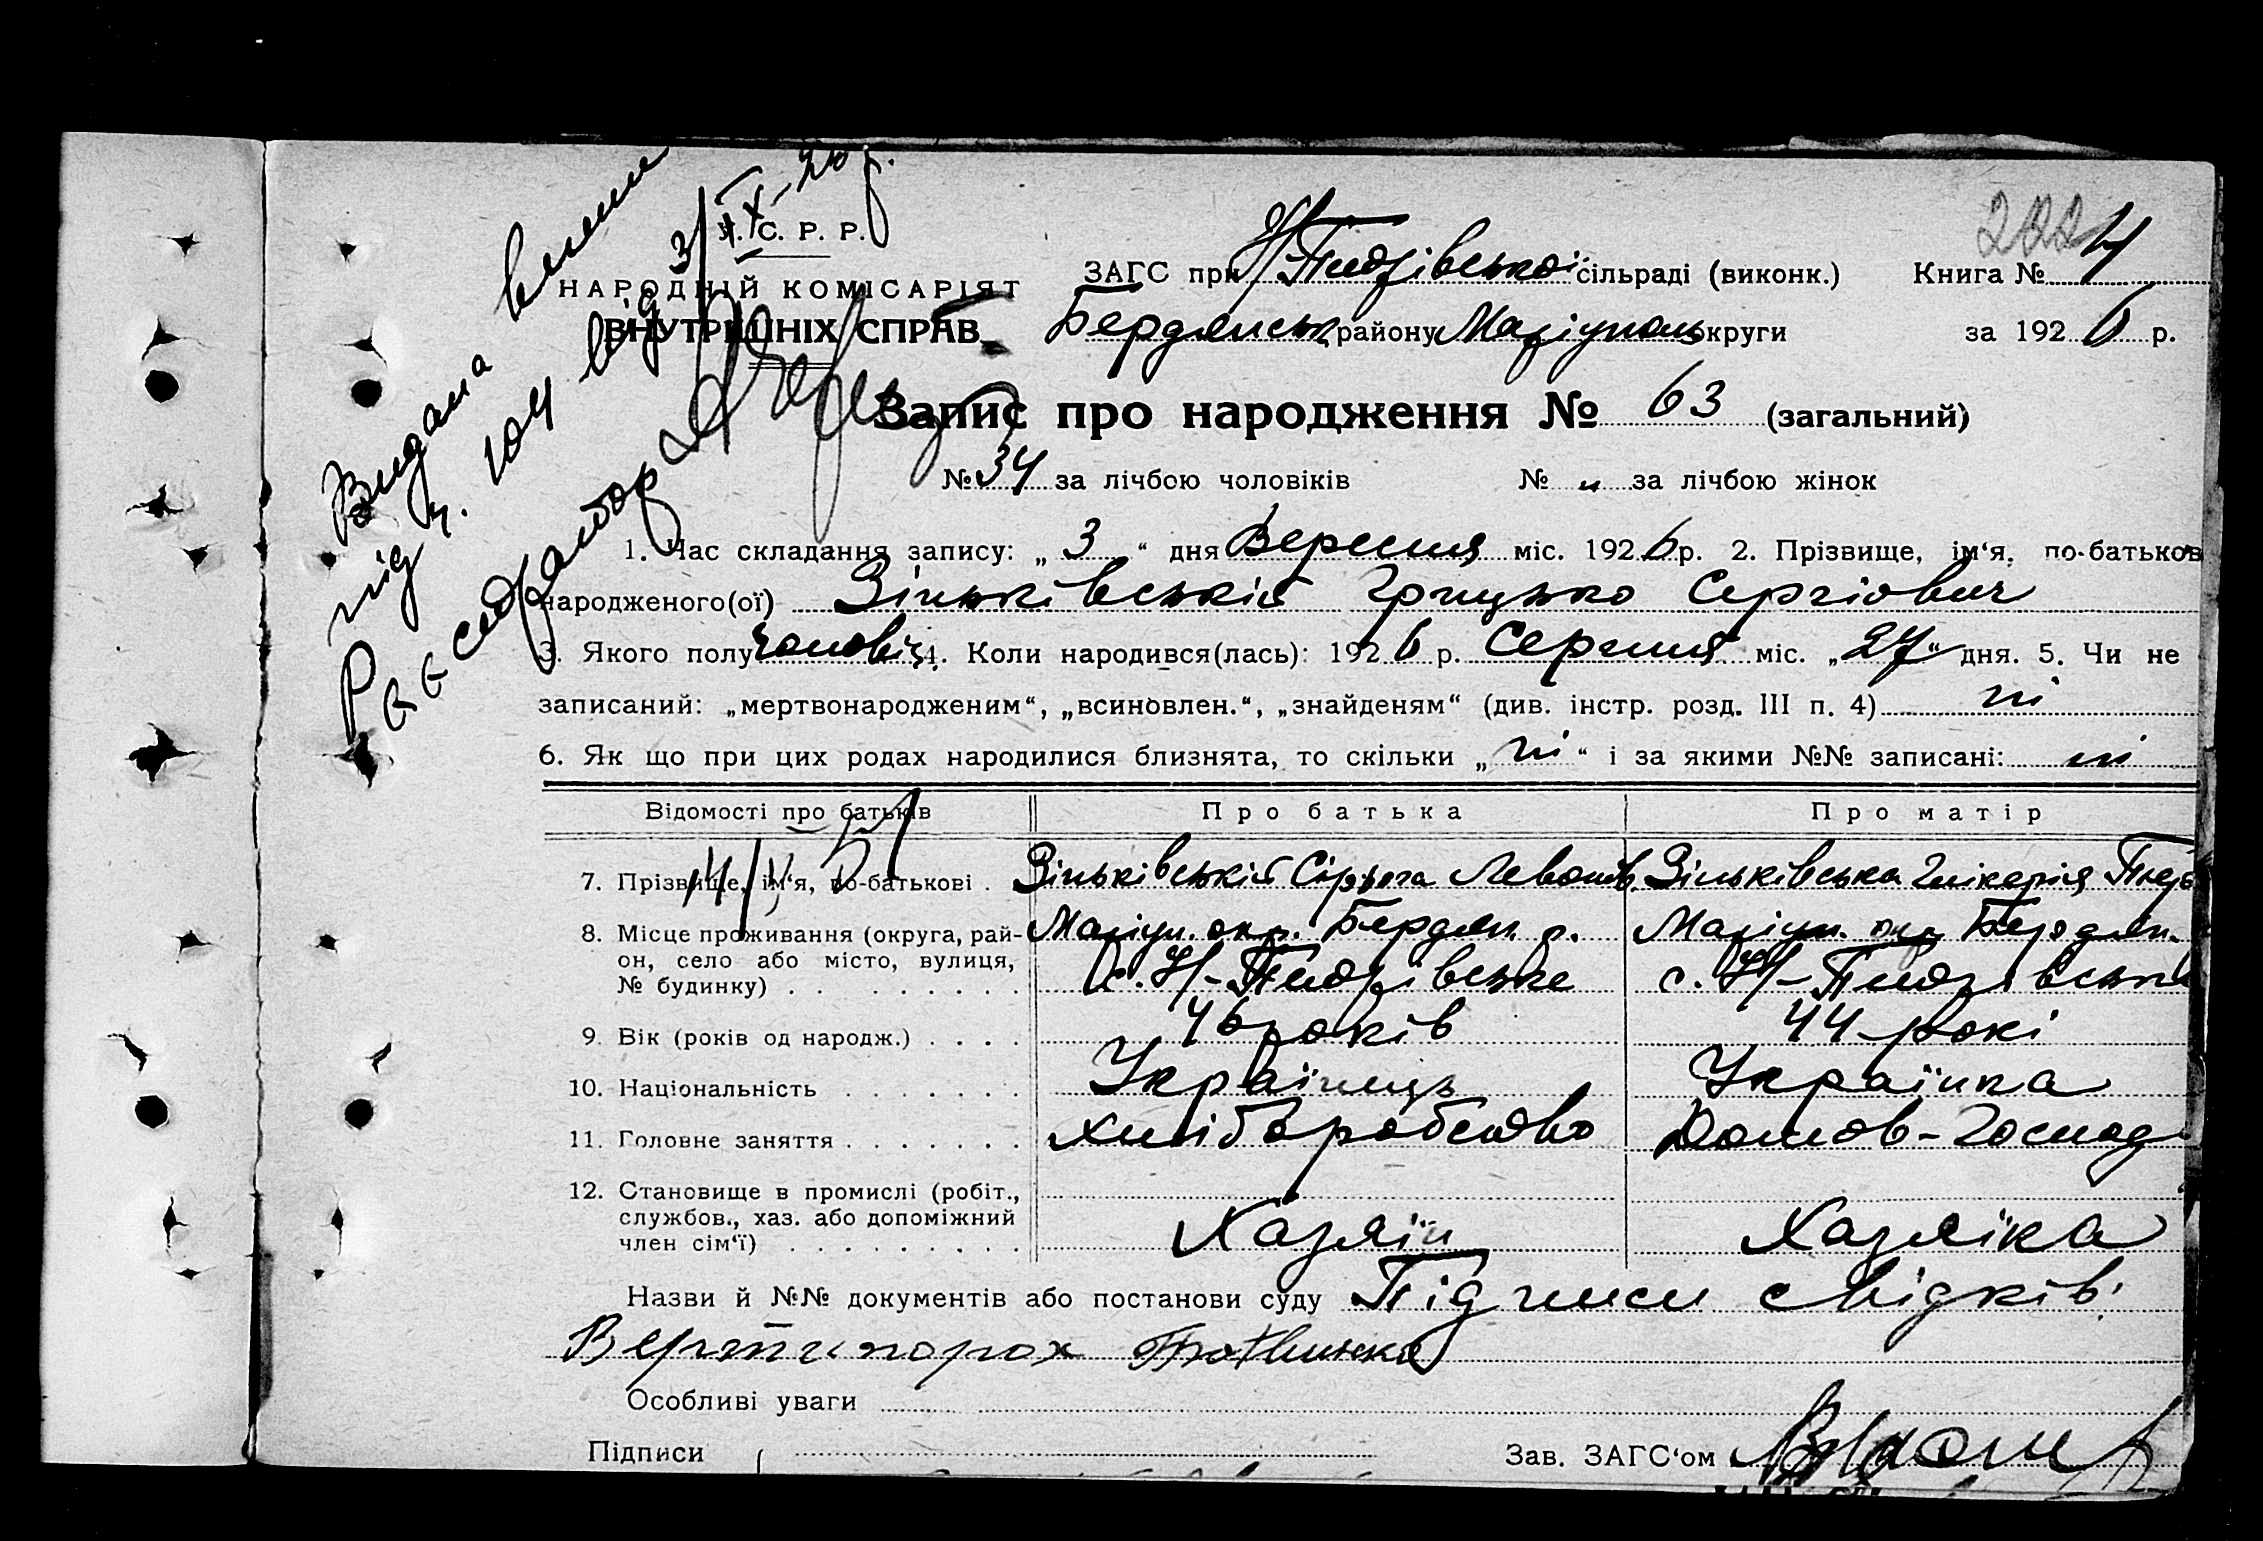 Видана
під ч. 104 від 3/IX-26 р.
У. С. Р. Р.
НАРОДНІЙ КОМІСАРІЯТ
ВНУТРІШНІХ СПРАВ
ЗАГС при сільраді (виконк.) Книга № 4
Бердянськ району Маріуполь округи за 1926 р.
Запис про народження № 63 (загальний)
№ 34 за лічбою чоловіків № „ за лічбою жінок
1. Час складання запису: „ 3 “ дня Вересня міс. 1926 р. 2. Прізвище, ім‘я, по-батькові
народженого(ої) Зіньківській Грицько Сергіович
3. Якого полу чоловіч. 4. Коли народився(лась): 1926 р. Серпня міс. „27“ дня. 5. Чи не
записаний: „мертвонародженим“, „всиновлен.“, „знайденям“ (див. інстр. розд. III п. 4) ні
6. Як що при цих родах народилися близнята, то скільки „ ні “ і за якими №№ записані: ні
Відомості про батьків Про батька Про матір
7. Прізвище, ім‘я, по-батькові . Зіньківській Сірьога Левонов. Зіньківська Глікерія
8. Місце проживання (округа, рай- Маріуп. окр. Бердян. р. Маріуп. окр. Бердян.
он, село або місто, вулиця,
№ будинку) с. Н-
9. Вік (років од народж.) 46 років 44 рокі
10. Національність Українець Українка
11. Головне заняття Хліборобство Домов-Господ
12. Становище в промислі (робіт.,
службов., хаз. або допоміжний
член сім‘ї) Хазяїн Хазяїка
Назви й №№ документів або постанови суду Підписи свідків:
Вертипорох
Особливі уваги
Підписи Зав. ЗАГС‘ом